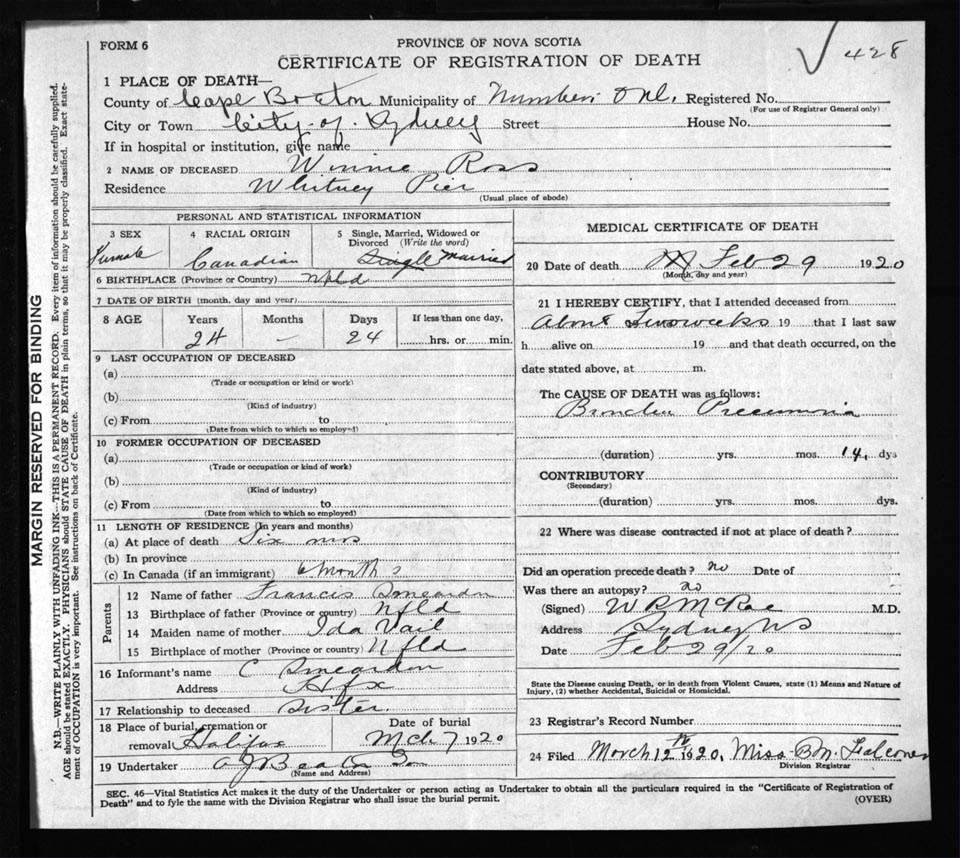 FORM 6
PROVINCE OF NOVA SCOTIA
CERTIFICATE OF REGISTRATION OF DEATH
428
1 PLACE OF DEATH—
County of Cape Breton Municipality of Number One, Registered No.
(For use of Registrar General only)
City or Town City of Sydney Street House No.
If in hospital or institution, give name
2 NAME OF DECEASED Winnie Ross
Residence Whitney Pier
(Usual place of abode)
PERSONAL AND STATISTICAL INFORMATION
3 SEX
Female
4 RACIAL ORIGIN
Canadian
5 Single, Married, Widowed or Divorced (Write the word)
Single Married
6 BIRTHPLACE (Province or Country) Nfld
7 DATE OF BIRTH (month, day and year)
8 AGE Years Months Days If less than one day,
24 – 24 hrs. or min.
9 LAST OCCUPATION OF DECEASED
(a)
(Trade or occupation or kind or work)
(b)
(Kind of industry)
(c) From to
(Date from which to which so employed)
10 FORMER OCCUPATION OF DECEASED
(a)
(Trade or occupation or kind of work)
(b)
(Kind of industry)
(c) From to
(Date from which to which so employed)
11 LENGTH OF RESIDENCE (In years and months)
(a) At place of death Six mos
(b) In province
(c) In Canada (if an immigrant) 6 months
Parents
12 Name of father Francis
13 Birthplace of father (Province or country) Nfld
14 Maiden name of mother Ida Vail
15 Birthplace of mother (Province or country) Nfld
16 Informant's name C
Address Hfx
17 Relationship to deceased Sister.
18 Place of burial, cremation or removal Halifax
Date of burial
Mch 7 1920
19 Undertaker A J Beaton Son
(Name and Address)
MEDICAL CERTIFICATE OF DEATH
20 Date of death Feb 29 1920
(Month, day and year)
21 I HEREBY CERTIFY, that I attended deceased from
About Two weeks 19 that I last saw
h alive on 19 and that death occurred, on the
date stated above, at m.
The CAUSE OF DEATH was as follows:
Broncho Pneumonia
(duration) yrs. mos. 14, dys
CONTRIBUTORY
(Secondary)
(duration) yrs. mos. dys.
22 Where was disease contracted if not at place of death?
Did an operation precede death? no Date of
Was there an autopsy? no
(Signed) W R McRae M.D.
Address Sydney NS
Date Feb 29/20
State the Disease causing Death, or in death from Violent Causes, state (1) Means and Nature of
Injury, (2) whether Accidental, Suicidal or Homicidal.
23 Registrar's Record Number
24 Filed March 12th 1920, Miss B M Falconer
Division Registrar
SEC. 46—Vital Statistics Act makes it the duty of the Undertaker or person acting as Undertaker to obtain all the particulars required in the "Certificate of Registration of
Death" and to fyle the same with the Division Registrar who shall issue the burial permit.
(OVER)
MARGIN RESERVED FOR BINDING
N.B.—WRITE PLAINLY WITH UNFADING INK—THIS IS A PERMANENT RECORD. Every item of information should be carefully supplied.
AGE should be stated EXACTLY. PHYSICIANS should STATE CAUSE OF DEATH in plain terms, so that it may be properly classified. Exact state-
ment of OCCUPATION is very important. See instructions on back of Certificate.